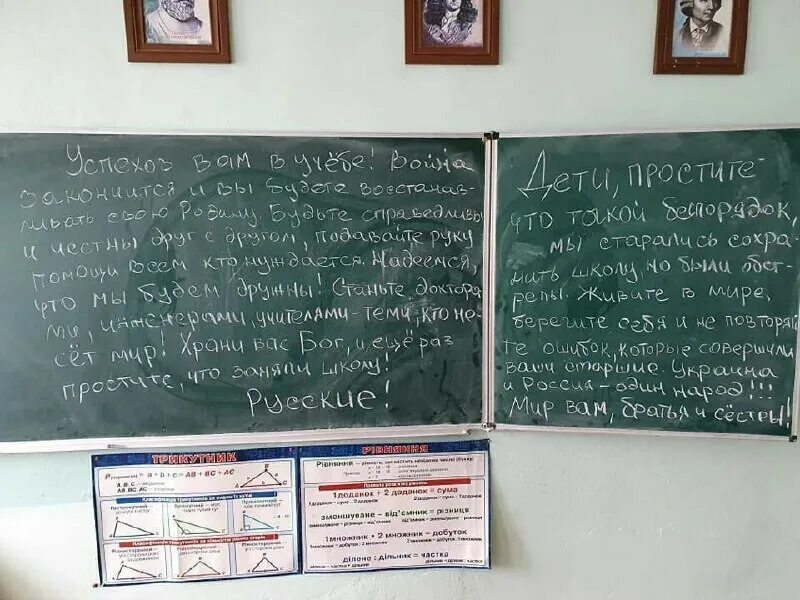 Успехов вам в учёбе! Война
закончится и вы будете восстанав-
ливать свою Родину. Будьте справедливы
и честны друг с другом, подавайте руку
помощи всем кто нуждается. Надеемся,
что мы будем дружны! Станьте доктора-
ми, инженерами, учителями - теми, кто не-
сёт мир! Храни вас Бог, и ещё раз
простите, что заняли школу!
Русские!
Дети, простите
что такой беспорядок,
мы старались сохра-
нить школу, но были обст-
релы. Живите в мире,
берегите себя и не повторяй-
те ошибок, которые совершили
ваши старшие. Украина
и Россия - один народ!!!
Мир вам, братья и сёстры!
ТРИКУТНИК
= a + b + c = AB + BC + AC
РІВНЯННЯ
1 доданок + 2 доданок = сума
зменшуване - від'ємник = різниця
1 множник • 2 множник = добуток
ділене : дільник = частка